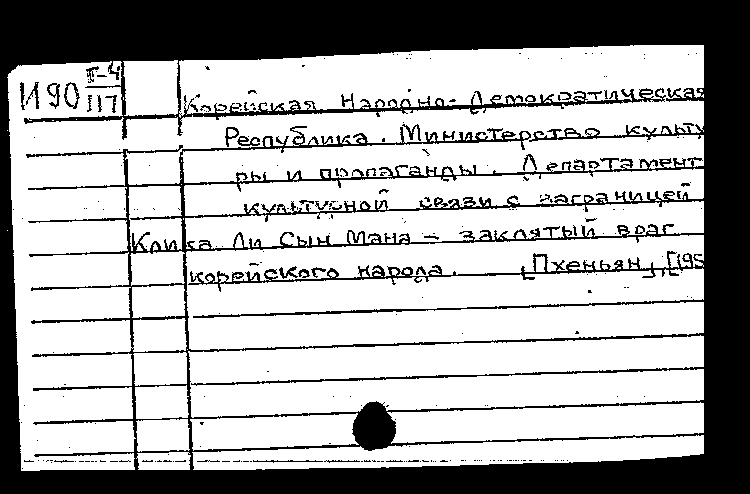 И90 Г-4
117
Корейская Народно-Демократическая
Республика. Министерство культу
ры и пропаганды. Департамент
культурной связи с заграницей
Клика Ли Сын Мана – заклятый враг
корейского народа. [Пхеньян], [195